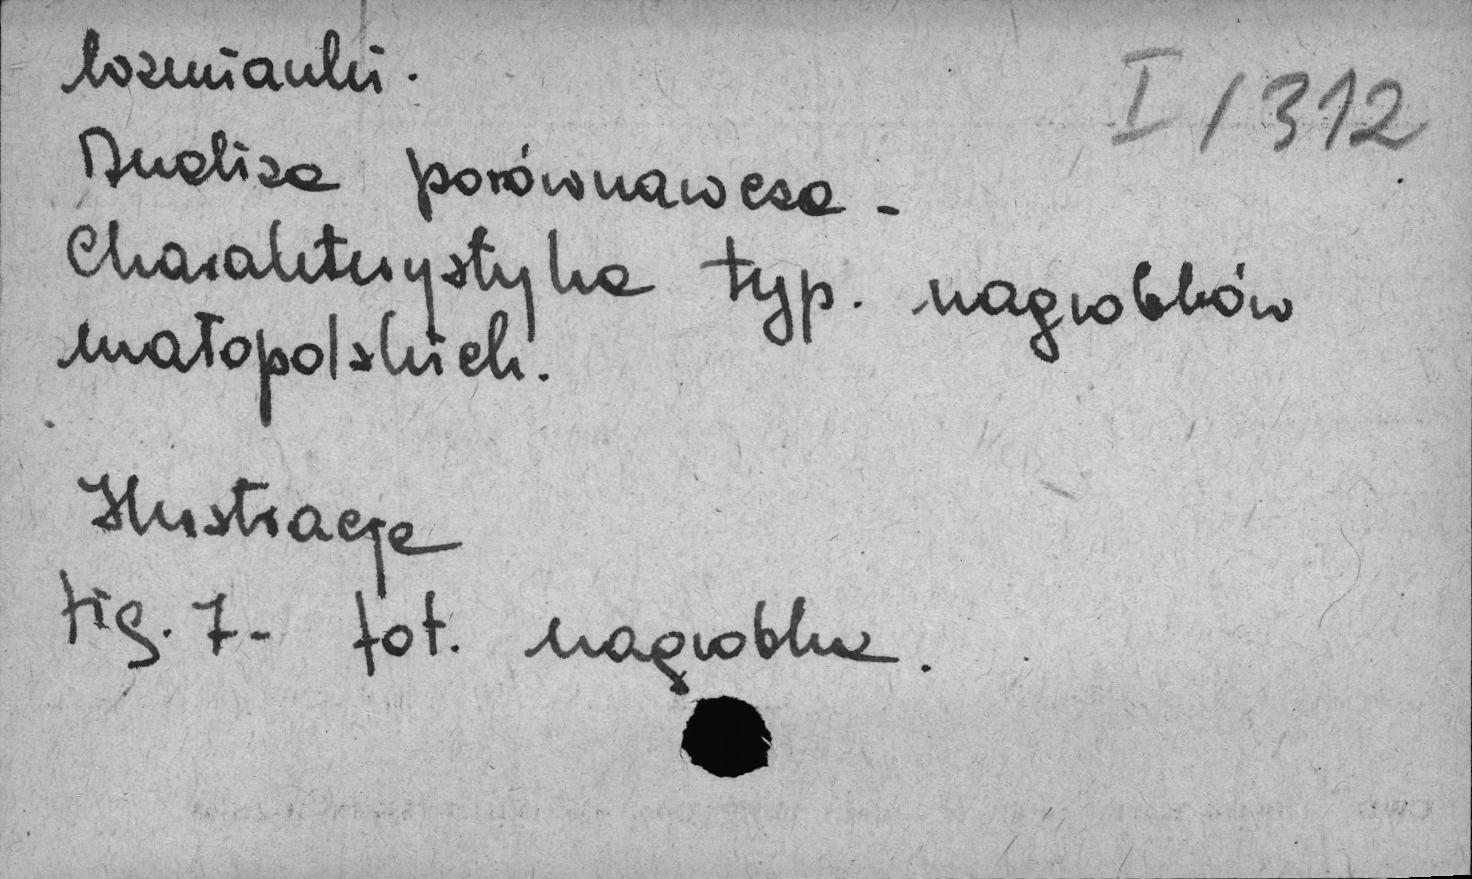 kozmianki.
I/312
Analiza porównawcza -
Charakterystyka typ. nagrobków
małopolskich.
Ilustracje
fig. 7- fot. nagrobka.